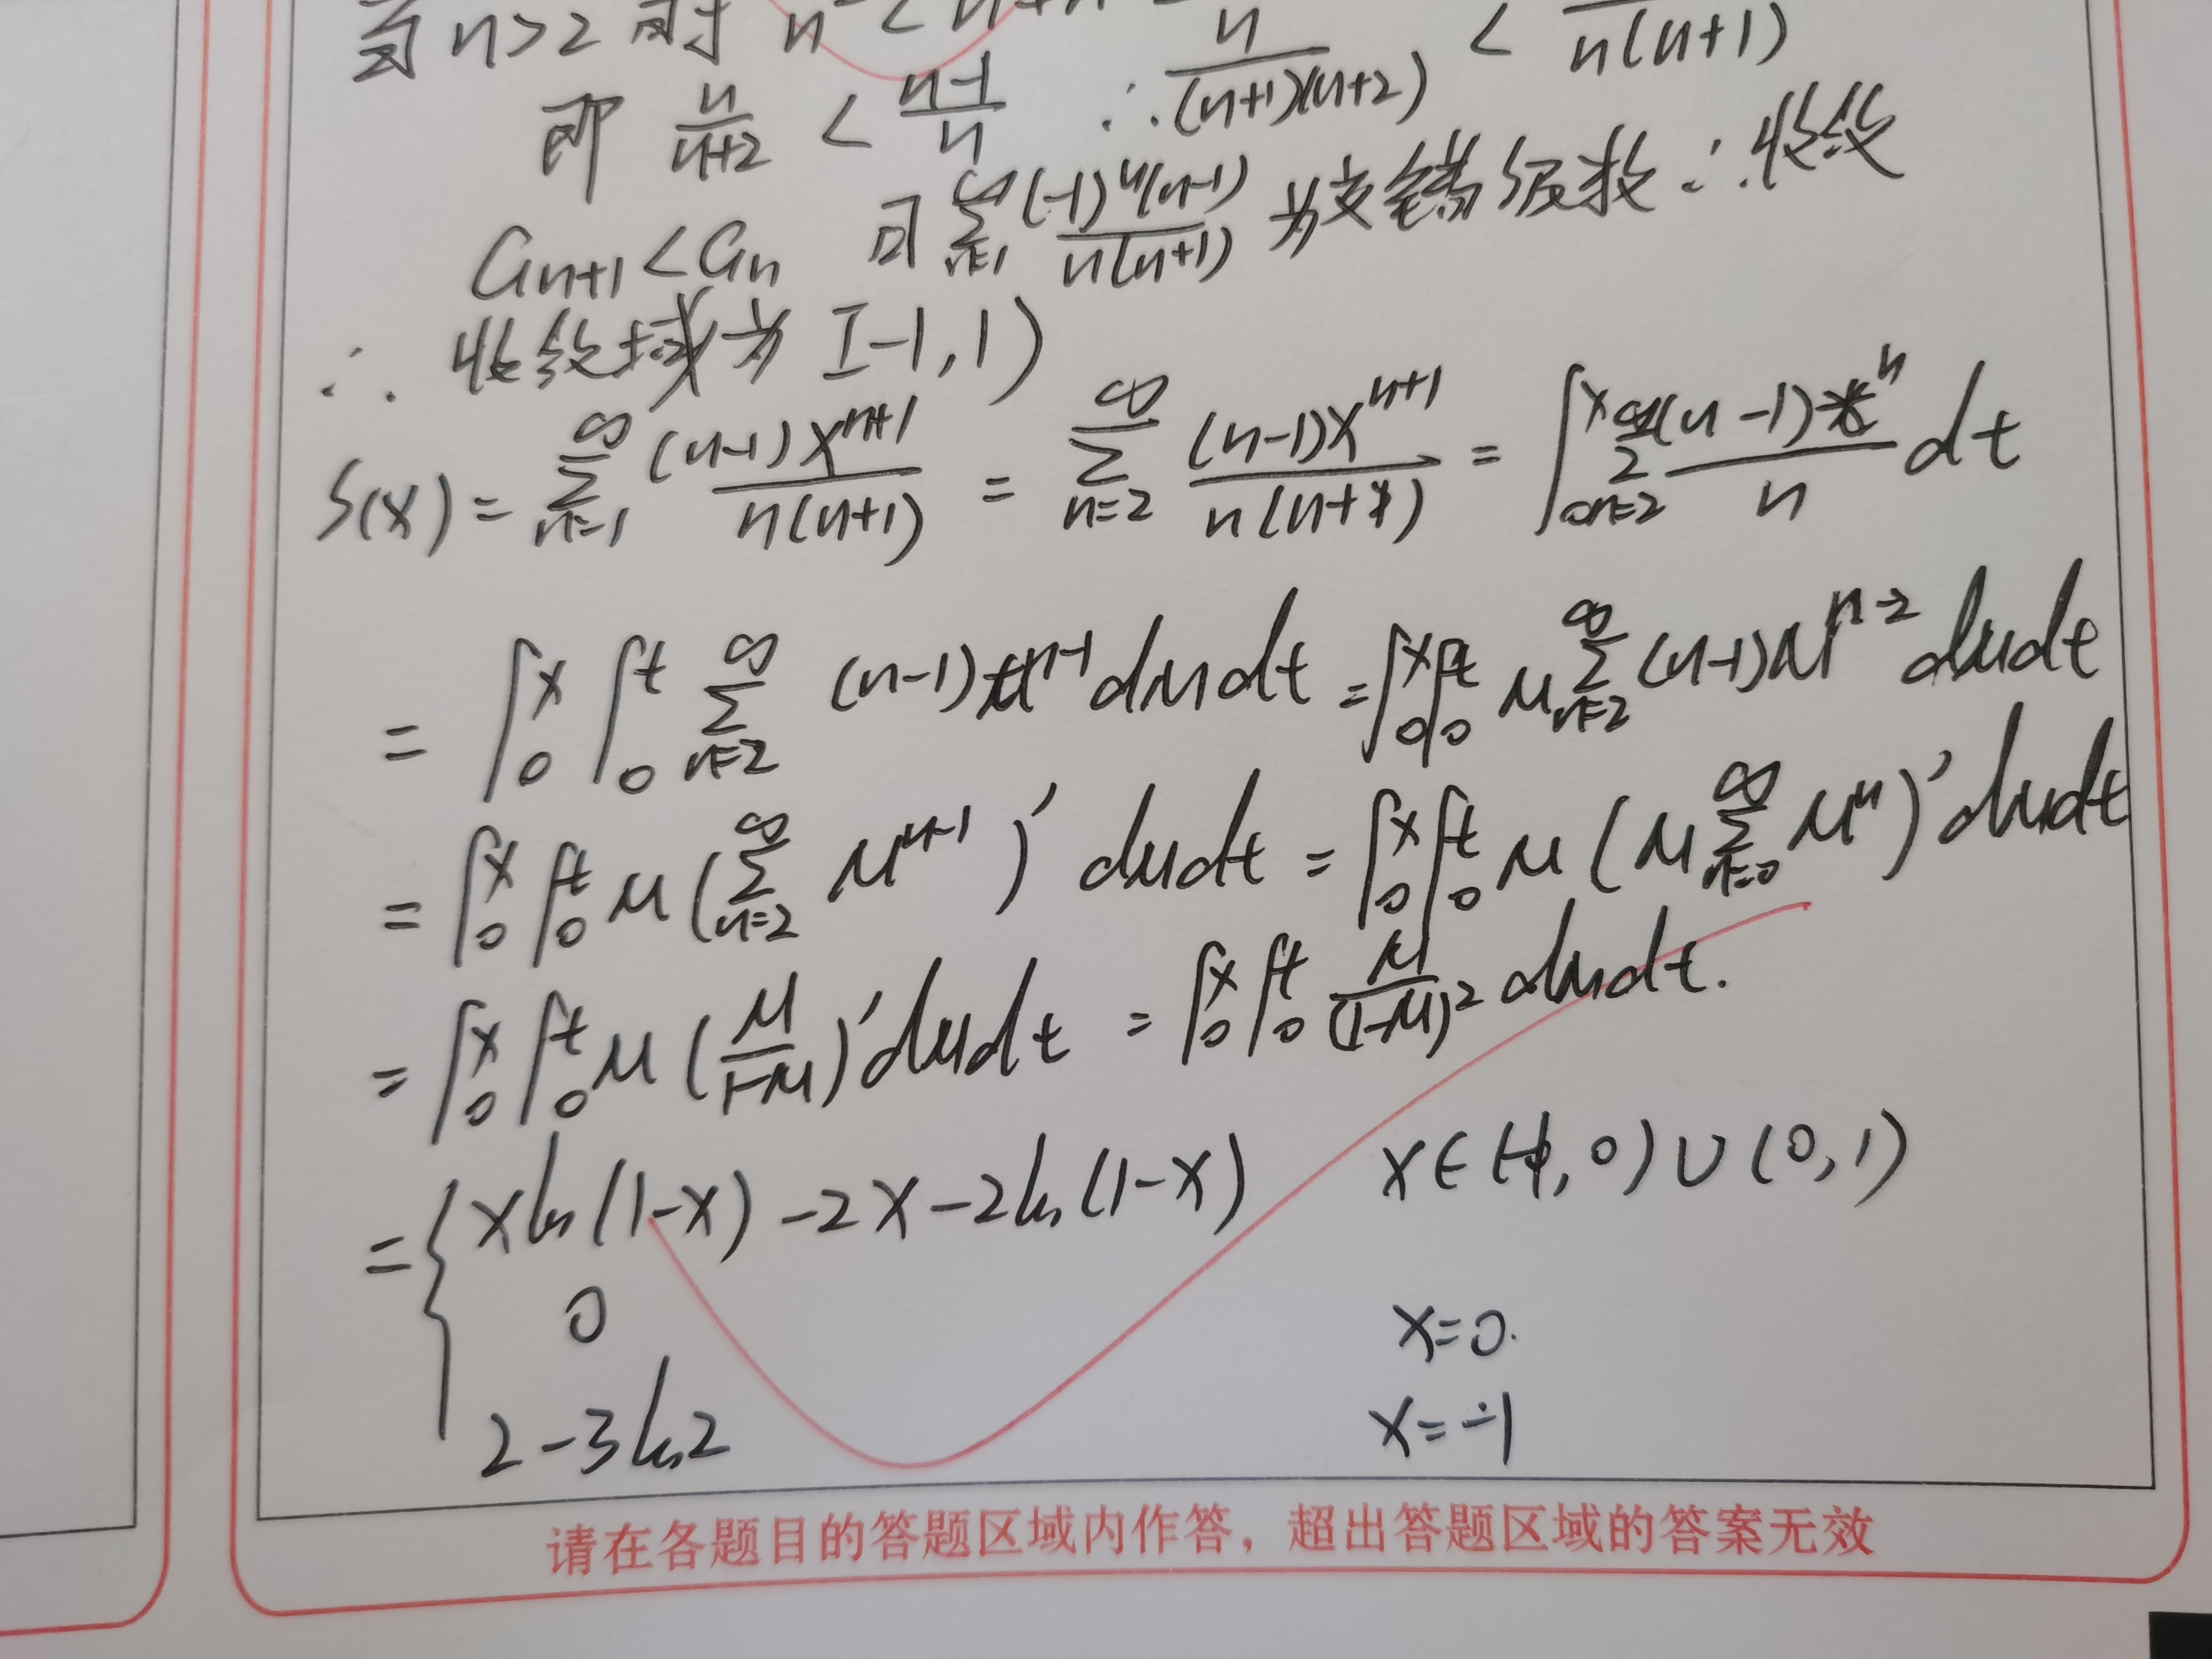 当 n>2 时 n² < n+n
n/((n+1)(n+2)) < /(n(n+1))
即 n/(n+2) < (n-1)/n ∴ 
a_{n+1} < a_n 且 ∑_{n=1}^{∞} (-1)^n(n-1)/(n(n+1)) 为交错级数 ∴ 收敛
∴ 收敛域为 [-1,1)
S(x) = ∑_{n=1}^{∞} (n-1)x^{n+1}/(n(n+1)) = ∑_{n=2}^{∞} (n-1)x^{n+1}/(n(n+1)) = ∫_0^x ∑_{n=2}^{∞} (n-1)t^n/n dt
= ∫_0^x ∫_0^t ∑_{n=2}^{∞} (n-1)u^{n-1} du dt = ∫_0^x ∫_0^t u ∑_{n=2}^{∞} (n-1)u^{n-2} du dt
= ∫_0^x ∫_0^t u (∑_{n=2}^{∞} u^{n-1})' du dt = ∫_0^x ∫_0^t u (u ∑_{n=0}^{∞} u^n)' du dt
= ∫_0^x ∫_0^t u (u/(1-u))' du dt = ∫_0^x ∫_0^t u/(1-u)² du dt.
= { x ln(1-x) - 2x - 2ln(1-x) x∈(-1,0)∪(0,1)
0 x=0.
2-3ln2 x=-1
请在各题目的答题区域内作答，超出答题区域的答案无效